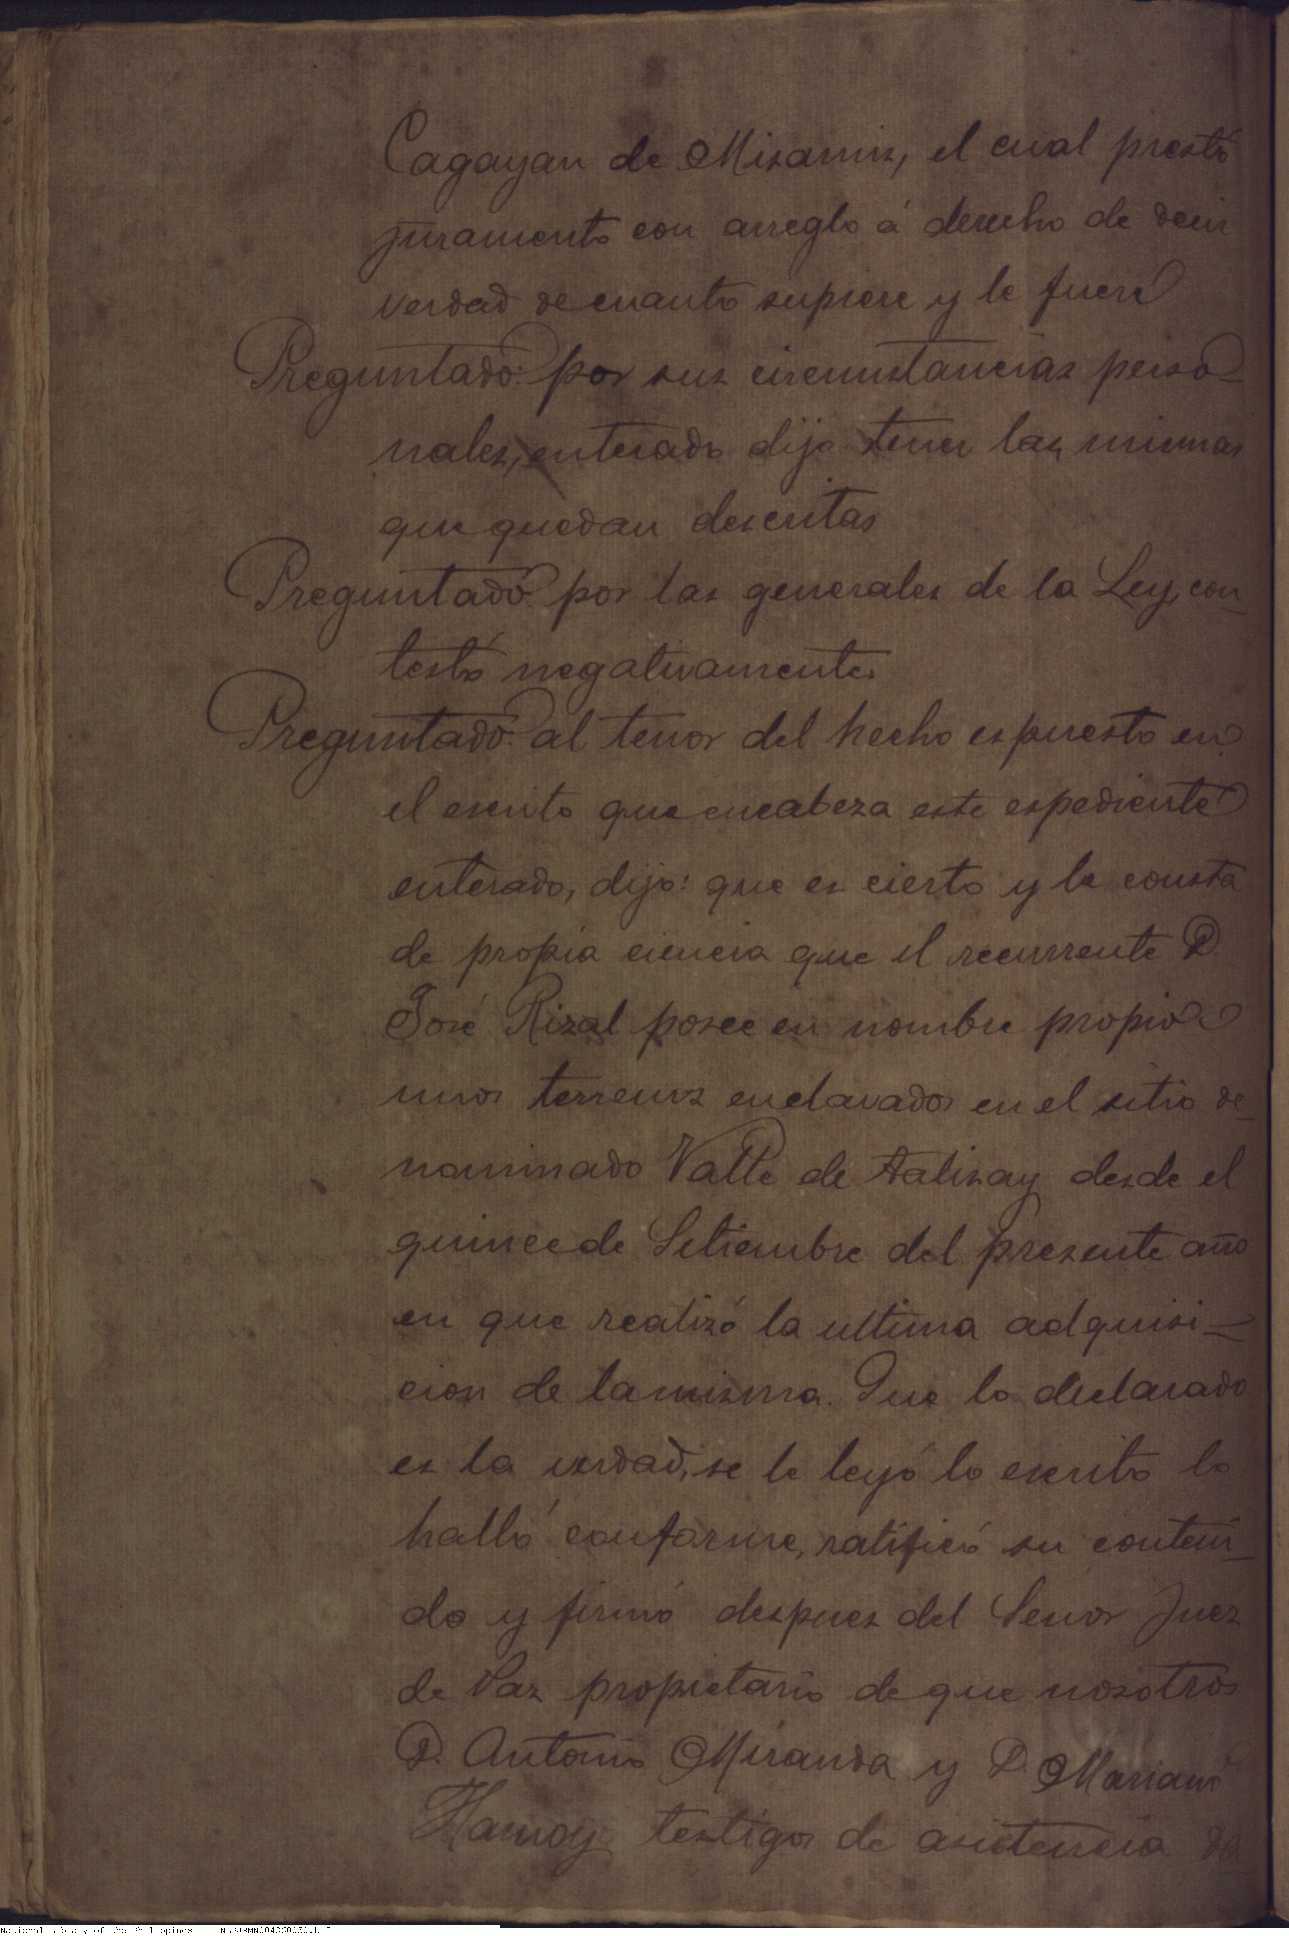 Cagayan de Misamis, el cual prestó
juramento con arreglo á derecho de decir
verdad de cuanto supiere y le fuere
Preguntado: por sus circunstancias perso-
nales, enterado dijo tener las mismas
que quedan descritas
Preguntado: por las generales de la Ley, con-
testó negativamente.
Preguntado: al tenor del hecho espuesto en
el escrito que encabeza este espediente
enterado, dijo: que es cierto y le consta
de propia ciencia que el recurrente D.
José Rizal posee en nombre propio
unos terrenos enclavados en el sitio de-
nominado Valle de Talisay desde el
quince de Setiembre del presente año
en que realizó la ultima adquisi-
cion de la misma. Que lo declarado
es la verdad, se le leyó lo escrito lo
halló conforme, ratificó su conteni-
do y firmó despues del Señor Juez
de Paz propietario de que nosotros
D. Antonio Miranda y D. Mariano
Hamoy testigos de asistencia
National Library of the Philippines